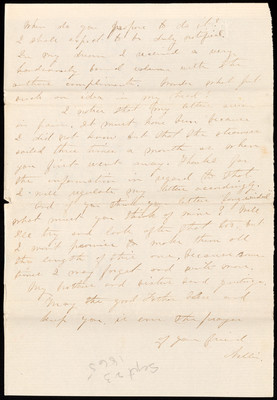 When do you propose to do it?
I shall expect to be duly notified.
In my dream I received a very
handsomely bound volume with the
authors compliments. Wonder what put
such an idea in my head?
I notice that my letters were
in pairs. It must have been because
I did not know but that the steamers
sailed three times a month as when
you first went away. Thanks for
the information in regard to that
I will regulate my letters accordingly.
And if you think my letters
what must you think of mine? Well
I'll try and look after that too, but
I won't promise to make them all
the length of this one, because some
time I may forget and write more.
My brother and sister send
May the good Father bless and
keep you, is ever the prayer
of your friend
Nellie.
Sept 23
1865